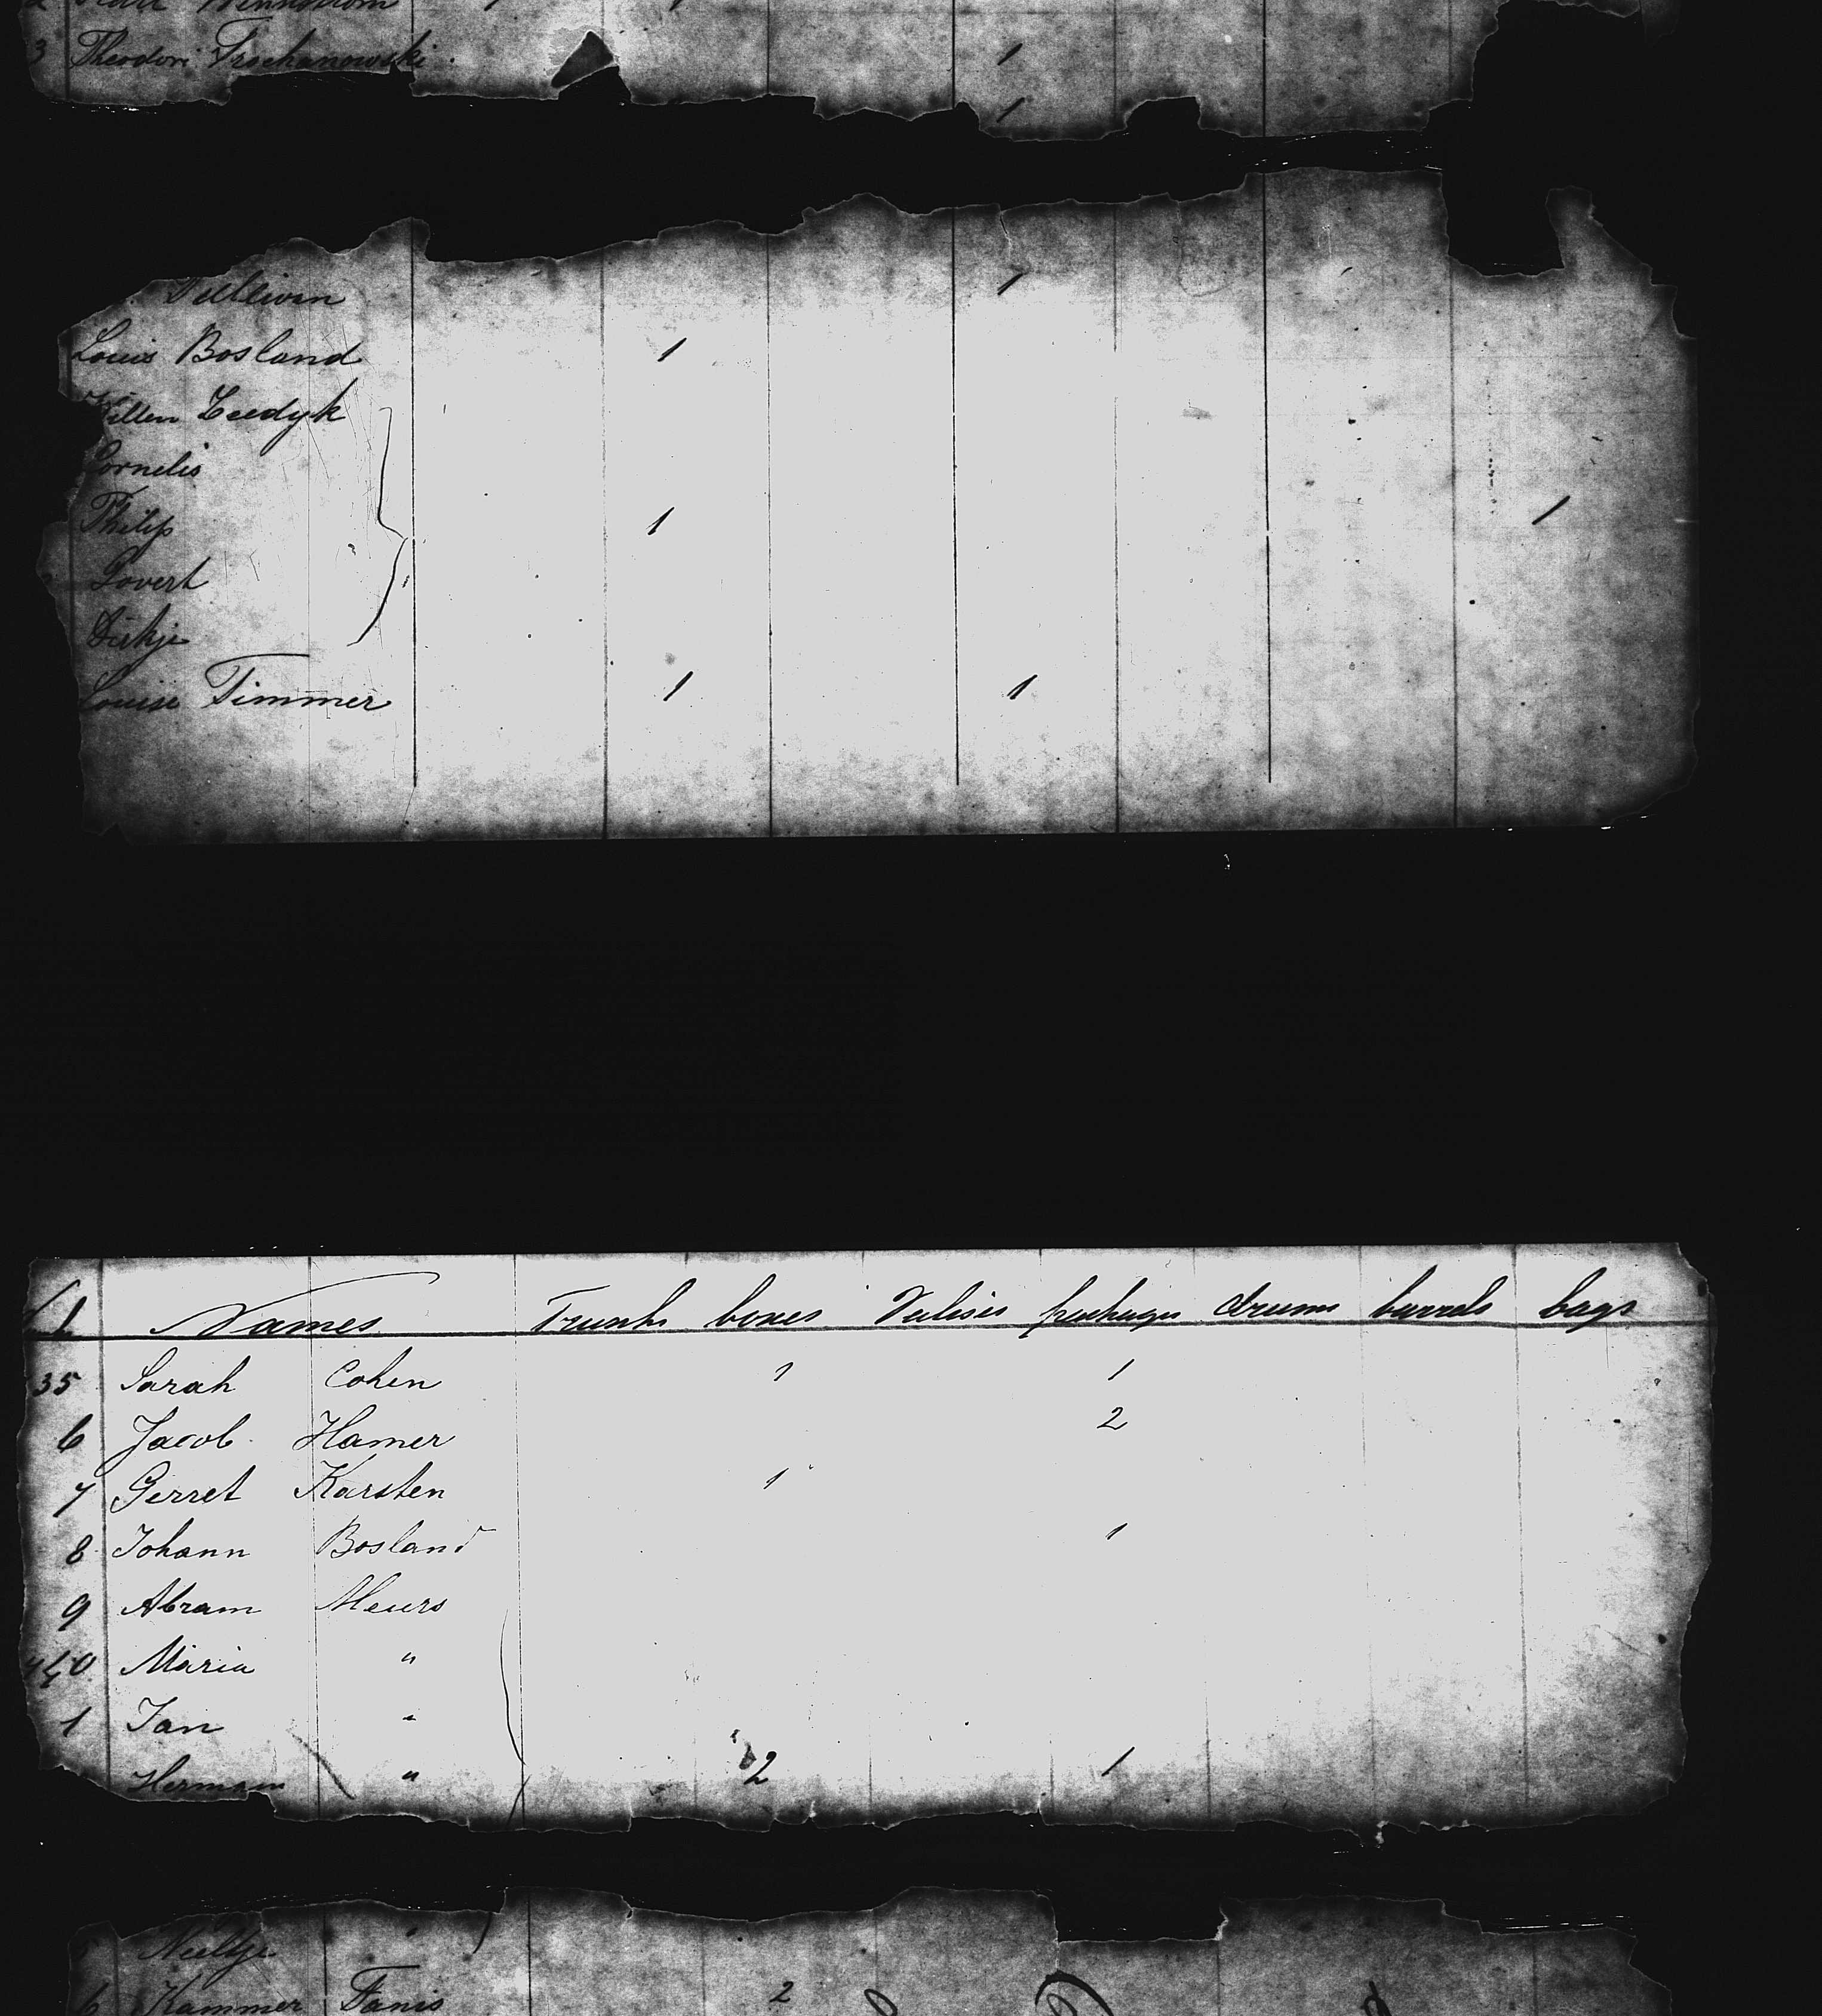 3 Theodori Trochanowski 1
1
Sullivan 1
Louis Bosland 1
Willem Leedyk
Cornelis
Philip 1 1
Govert
Dirkje
Louise Timmer 1 1
Names Trunks boxes Valises packages drums barrels bags
35 Sarah Cohen 1 1
6 Jacob Hamer 2
7 Gerret Karsten 1
8 Johann Bosland 1
9 Abram Meurs
440 Maria "
1 Jan "
Hermann " 2 1
Neeltje "
6 Kammer Fanis 2